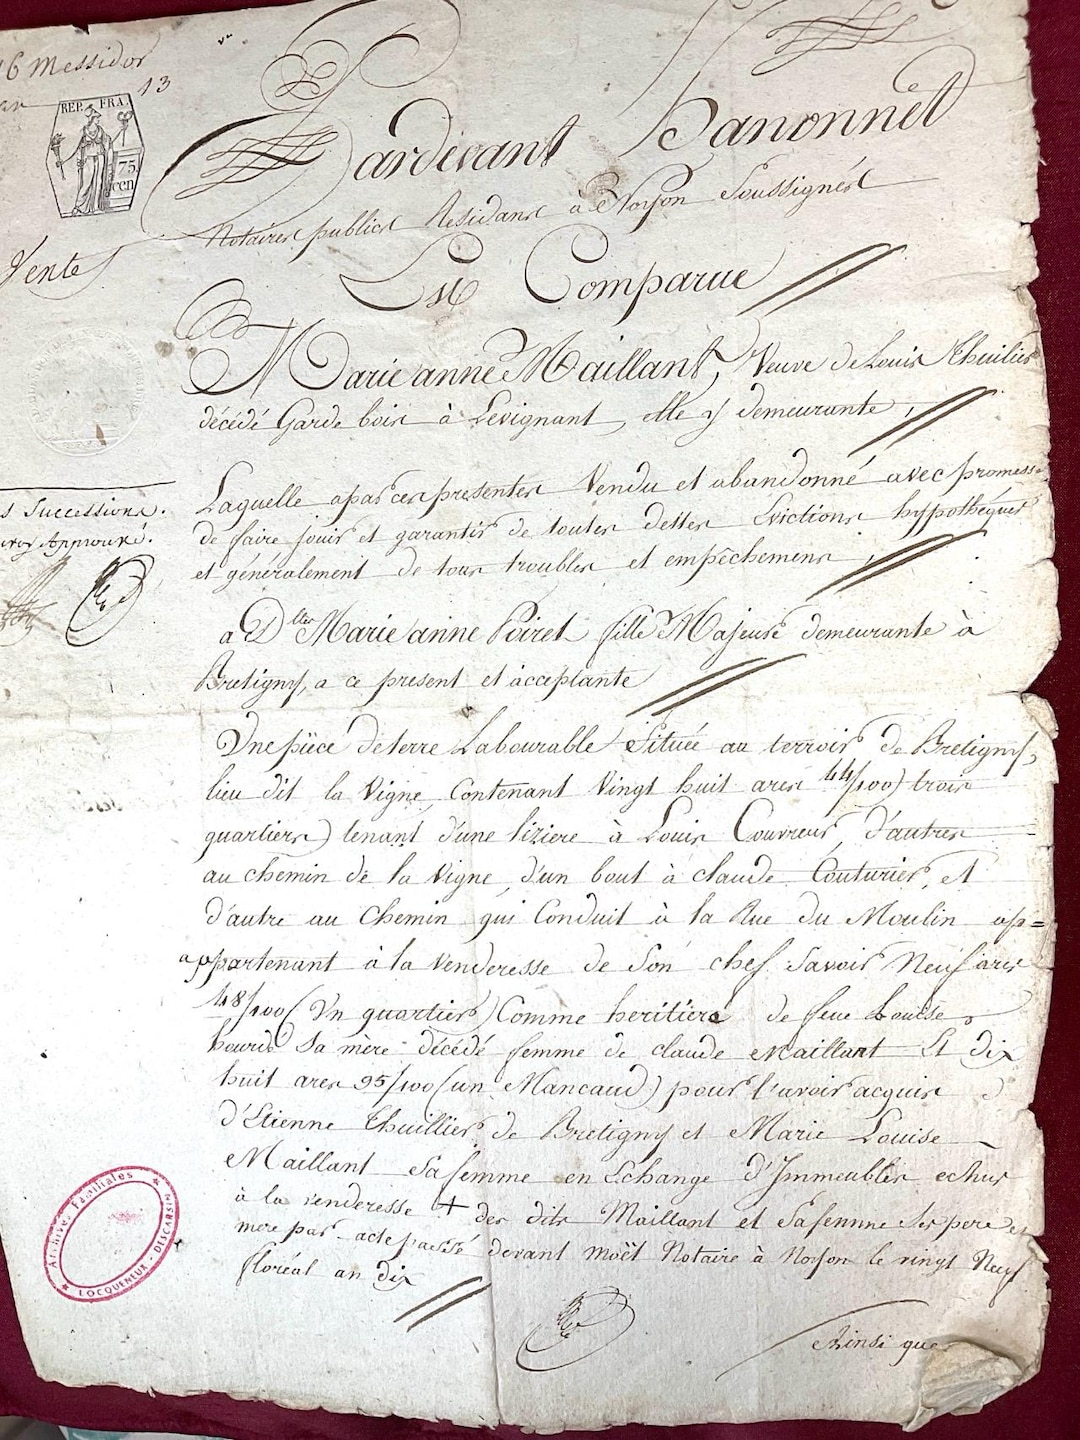 16 Messidor
an 13
REP. FRA.
75
cen
Pardevant Hanonnet
Notaires publics Residans à Noyon Soussignés
Vente
Est Comparue
Marie anne Maillant, Veuve de Louis Thuilier
décédé Garde bois à Levignant, elle y demeurante,
Laquelle a par ces presentes Vendu et abandonné avec promesse
s Successions.
de faire jouir et garantir de toutes dettes Evictions hypothéques
Approuvé.
et généralement de tous troubles et empêchemens,
a Dlle Marie anne Poiret fille Majeure demeurante à
Bretigny, a ce present et acceptante
Une piëce de terre Labourable Située au terroir de Bretigny,
lieu dit la Vigne, Contenant Vingt huit ares 44/100) trois
quartiers) tenant d'une liziere à Louis Couvreur, d'autres
au chemin de la Vigne, d'un bout à claude Couturier, et
d'autre au Chemin qui Conduit à la Rue du Moulin ap=
appartenant à la Venderesse de Son chef Savoir Neuf ares
48/100 (Un quartier) Comme heritiere de feue Louise
hourdé Sa mère décédé femme de claude Maillant Et dix
huit ares 95/100 (un Mancaud) pour l'avoir acquis
d'Etienne Thuillier de Bretigny et Marie Louise
Maillant Sa femme en Echange d'Immeubles echus
à la venderesse + des dits Maillant et Safemme Ses pere et
mere par acte passé devant Moët Notaire à Noyon le vingt Neuf
floréal an dix
Ainsi que
Archives Familiales
LOCQUENEUX - DESCARSIN